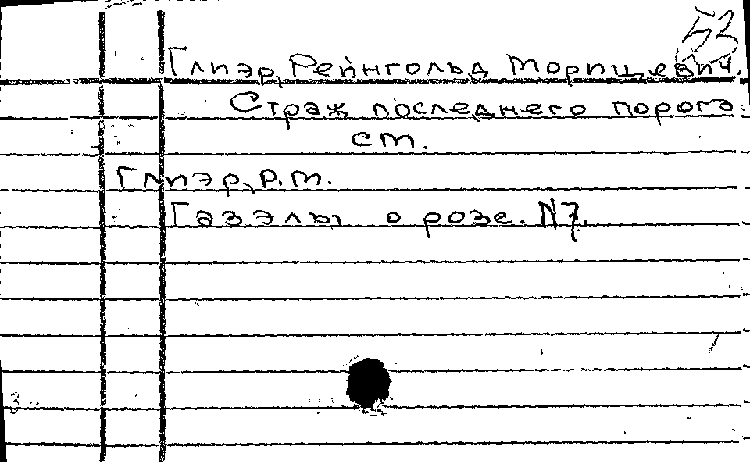 53
Глиэр, Рейнгольд Морицевич.
Страж последнего порога:
ст.
Глиэр, Р.М.
Газэлы о розе. N7.